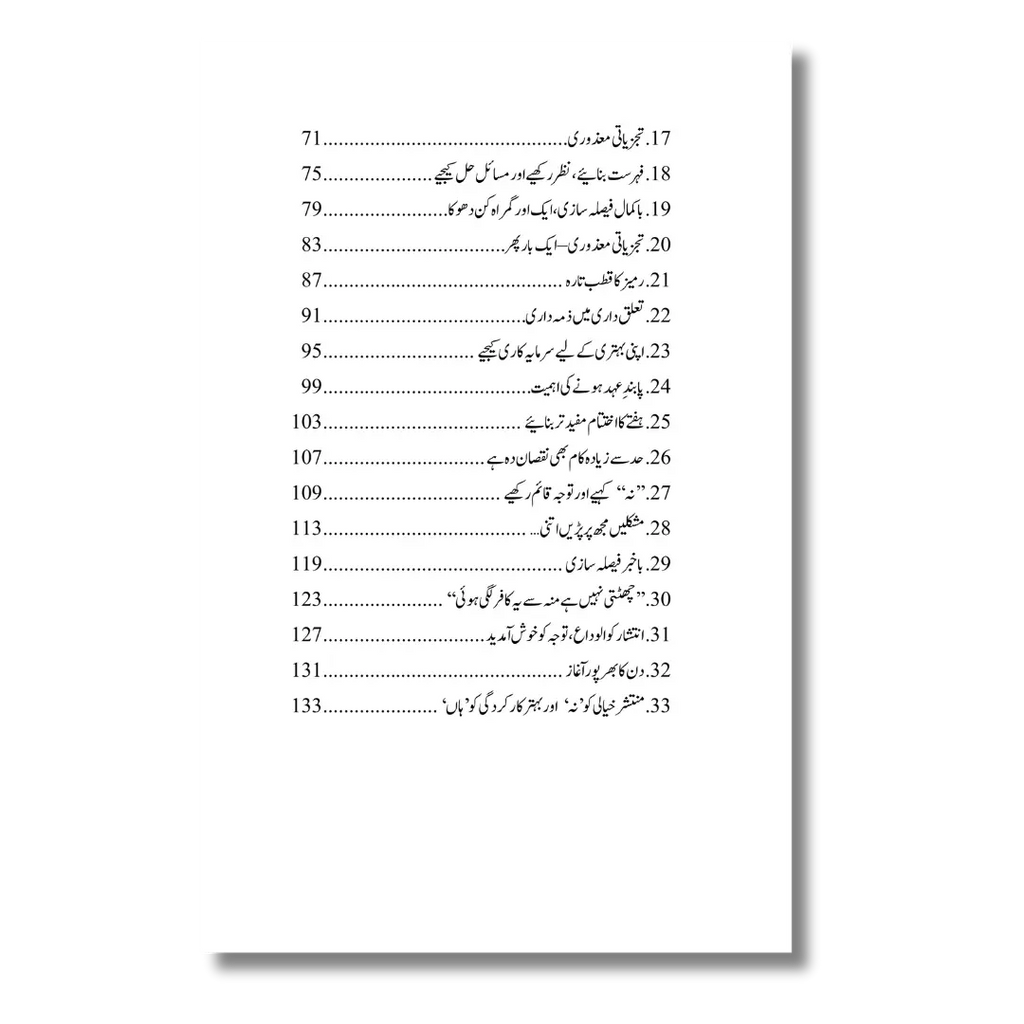 17. تجزیاتی معذوری...............................................71
18. فہرست بنائیے، نظر رکھیے اور مسائل حل کیجیے .....................75
19. باکمال فیصلہ سازی، ایک اور گمراہ کن دھوکا........................79
20. تجزیاتی معذوری–ایک بار پھر...................................83
21. رمیز کا قطب تارہ ..............................................87
22. تعلق داری میں ذمہ داری.......................................91
23. اپنی بہتری کے لیے سرمایہ کاری کیجیے .............................95
24. پابندِ عہد ہونے کی اہمیت........................................99
25. ہفتے کا اختتام مفید تر بنائیے ......................................103
26. حد سے زیادہ کام بھی نقصان دہ ہے...............................107
27. ”نہ“ کہیے اور توجہ قائم رکھیے ..................................109
28. مشکلیں مجھ پر پڑیں اتنی... .......................................113
29. باخبر فیصلہ سازی ..............................................119
30. ”چھٹتی نہیں ہے منہ سے یہ کافر لگی ہوئی“ .......................123
31. انتشار کو الوداع، توجہ کو خوش آمدید...............................127
32. دن کا بھرپور آغاز ..............................................131
33. منتشر خیالی کو ’نہ‘ اور بہتر کارکردگی کو ’ہاں‘ ......................133